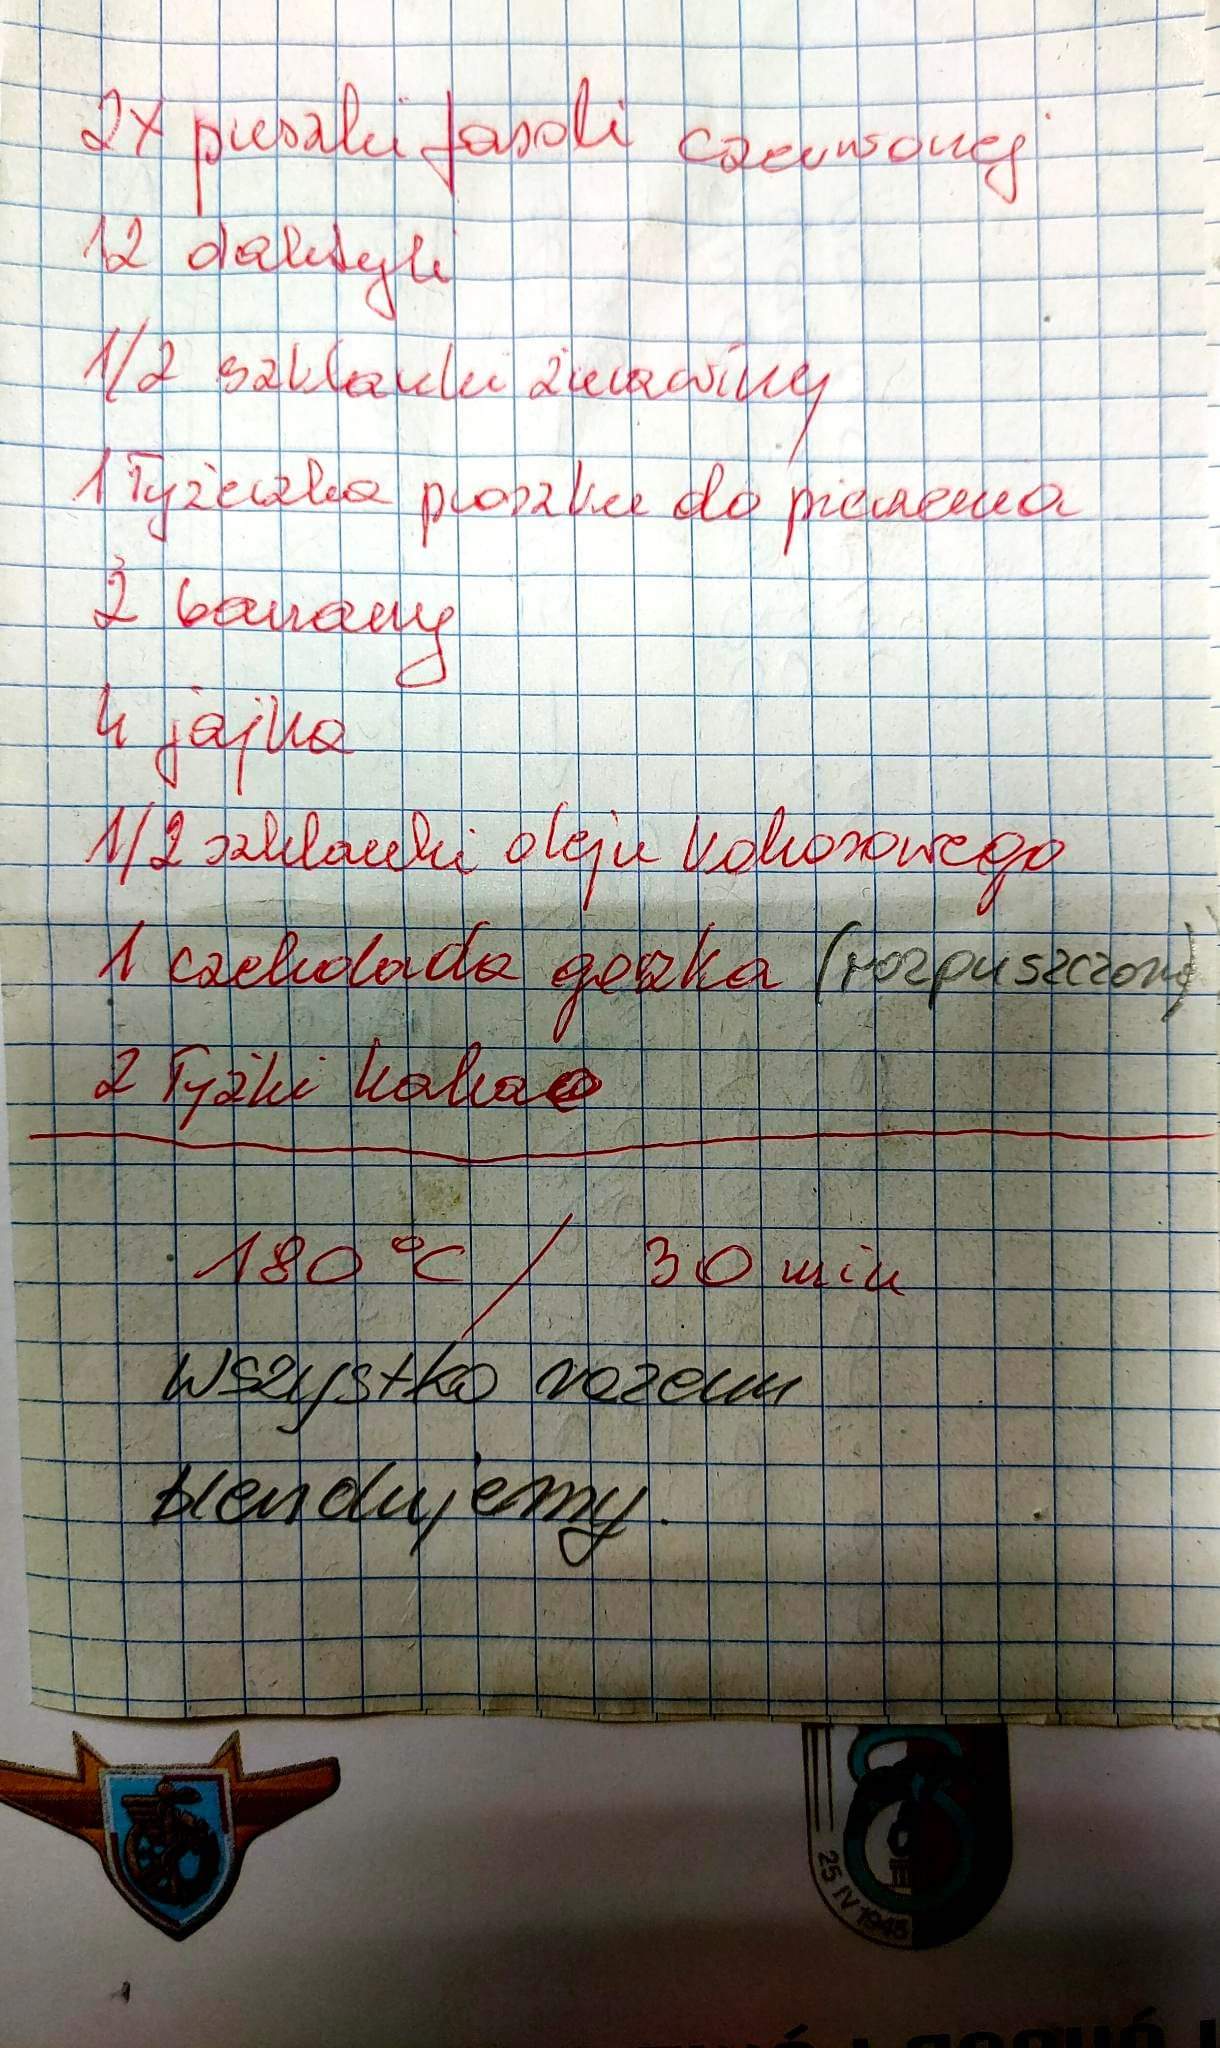 2x puszki fasoli czerwonej
12 daktyli
1/2 szklanki żurawiny
1 łyżeczka proszku do pieczenia
2 banany
4 jajka
1/2 szklanki oleju kokosowego
1 czekolada gorzka (rozpuszczona)
2 łyżki kakao
180°C / 30 min
wszystko razem
blendujemy.
25 IV 1945